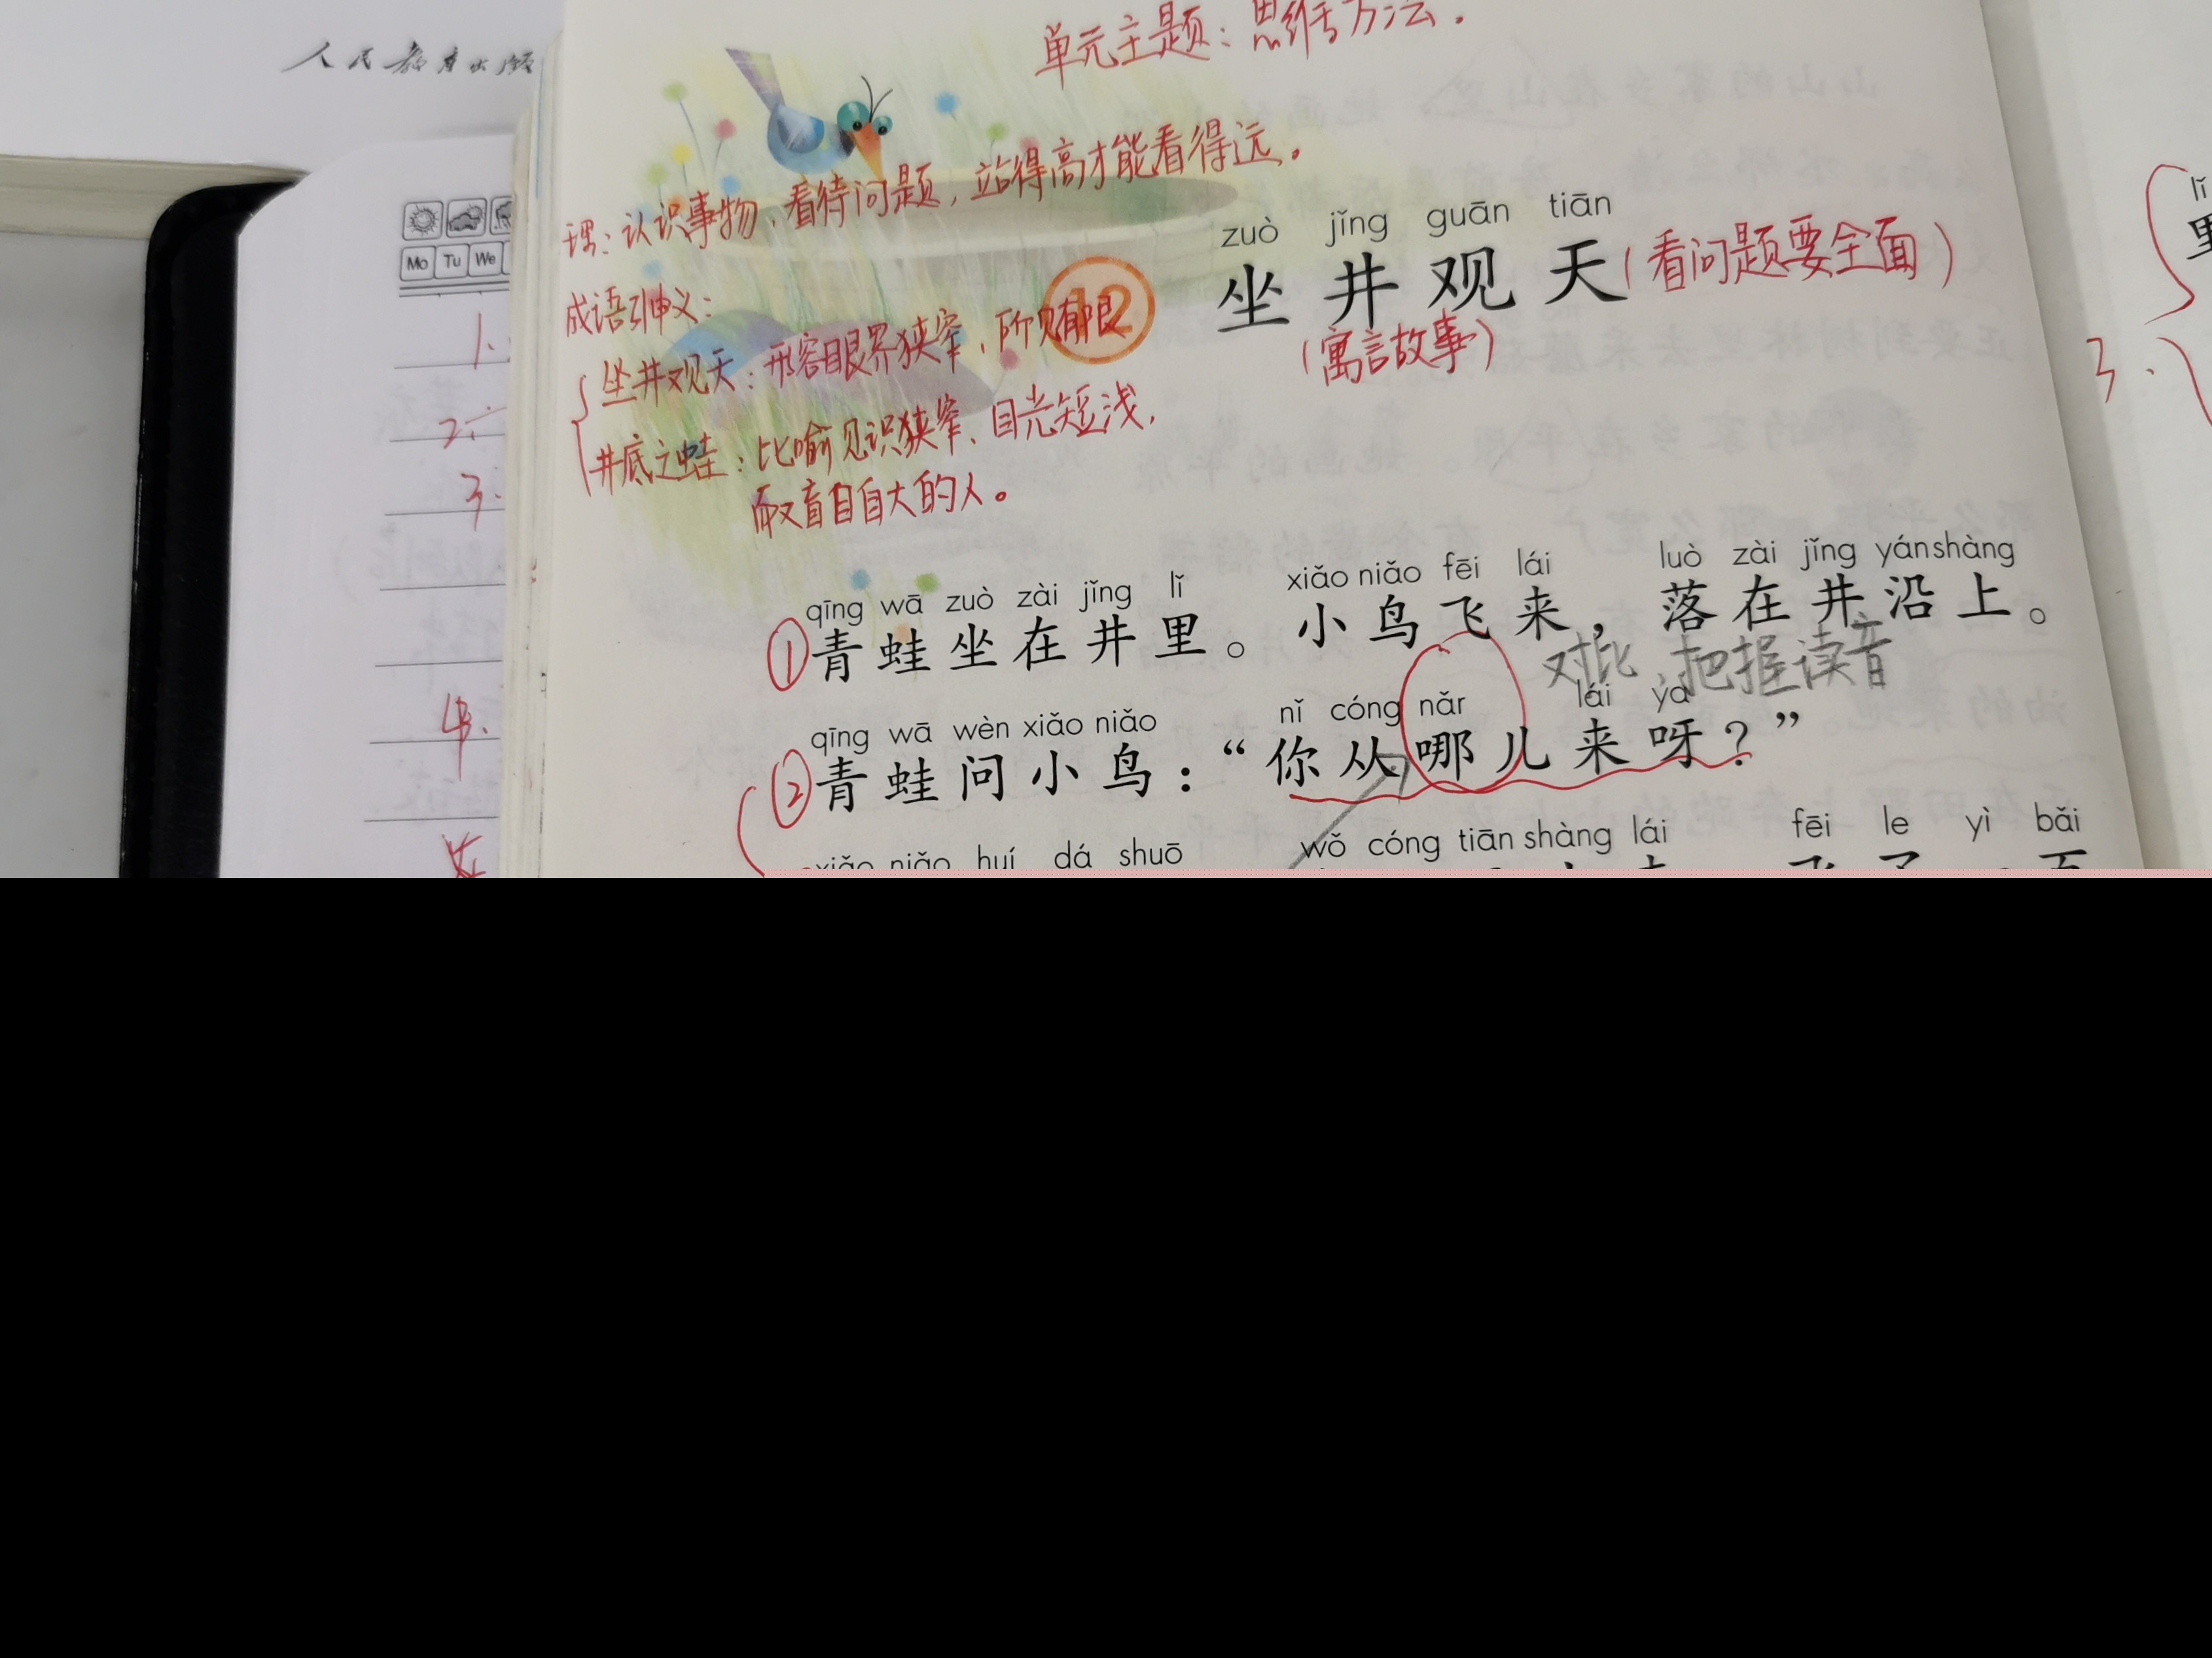 人民教育出版
单元主题：思维方法.
理：认识事物、看待问题，站得高才能看得远。
zuò jǐng guān tiān
12 坐井观天（看问题要全面）
（寓言故事）
成语引申义：
坐井观天：形容眼界狭窄，所见有限
井底之蛙：比喻见识狭窄、目光短浅，
而又盲目自大的人。
Mo Tu We
1.
2.
3.
4.
qīng wā zuò zài jǐng lǐ xiǎo niǎo fēi lái luò zài jǐng yán shàng
①青蛙坐在井里。小鸟飞来，落在井沿上。
对比，把握读音
qīng wā wèn xiǎo niǎo nǐ cóng nǎr lái ya
②青蛙问小鸟：“你从哪儿来呀？”
xiǎo niǎo huí dá shuō wǒ cóng tiān shàng lái fēi le yì bǎi
lǐ
里
3.